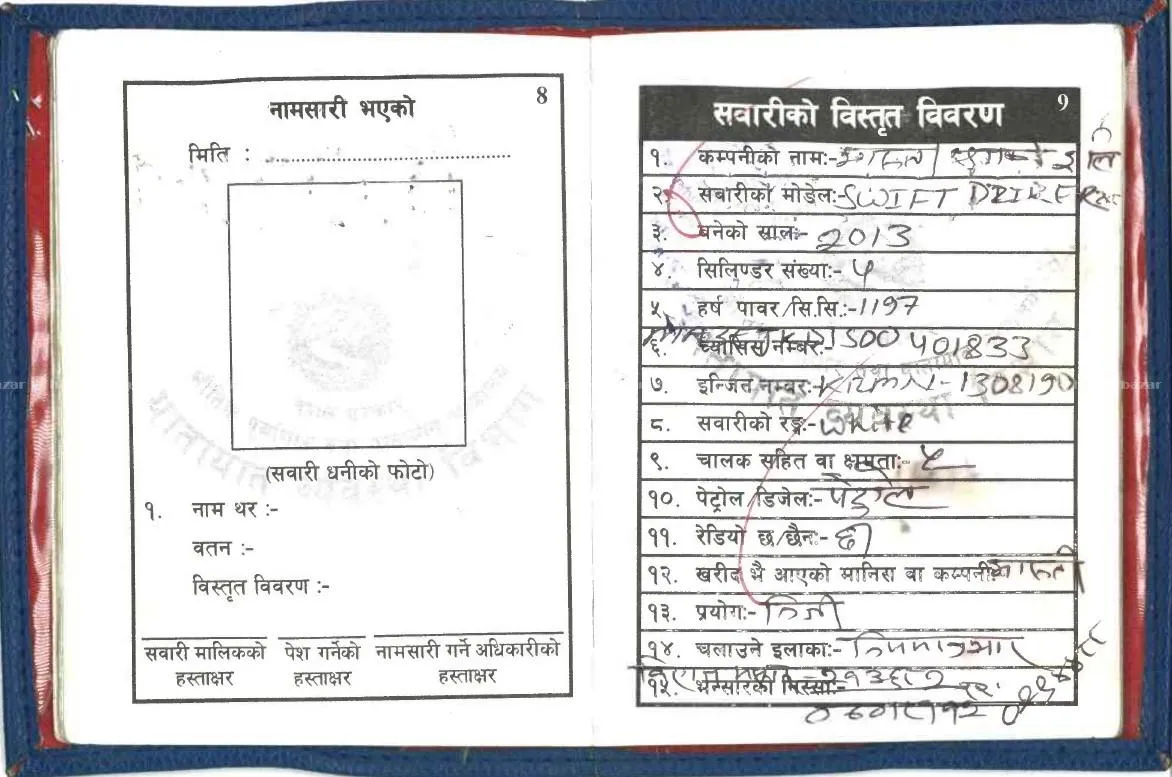 8
नामसारी भएको
मिति : ..........................................
(सवारी धनीको फोटो)
१. नाम थर :-
वतन :-
विस्तृत विवरण :-
सवारी मालिकको हस्ताक्षर
पेश गर्नेको हस्ताक्षर
नामसारी गर्ने अधिकारीको हस्ताक्षर
9
सवारीको विस्तृत विवरण
१. कम्पनीको नाम:-
२. सवारीको मोडेल:- SWIFT
३. बनेको साल:- 2013
४. सिलिण्डर संख्या:- ५
५. हर्ष पावर/सि.सि.:- 1197
६. च्यासिस नम्बर:- 401833
७. इन्जिन नम्बर:- 1308190
८. सवारीको रङ्ग:- White
९. चालक सहित वा क्षमता:- ५
१०. पेट्रोल डिजेल:- पेट्रोल
११. रेडियो छ/छैन:- छ
१२. खरीद भै आएको मानिस वा कम्पनी:-
१३. प्रयोग:- निजी
१४. चलाउने इलाका:- नियमानुसार
१५. भन्सारको निस्सा:-